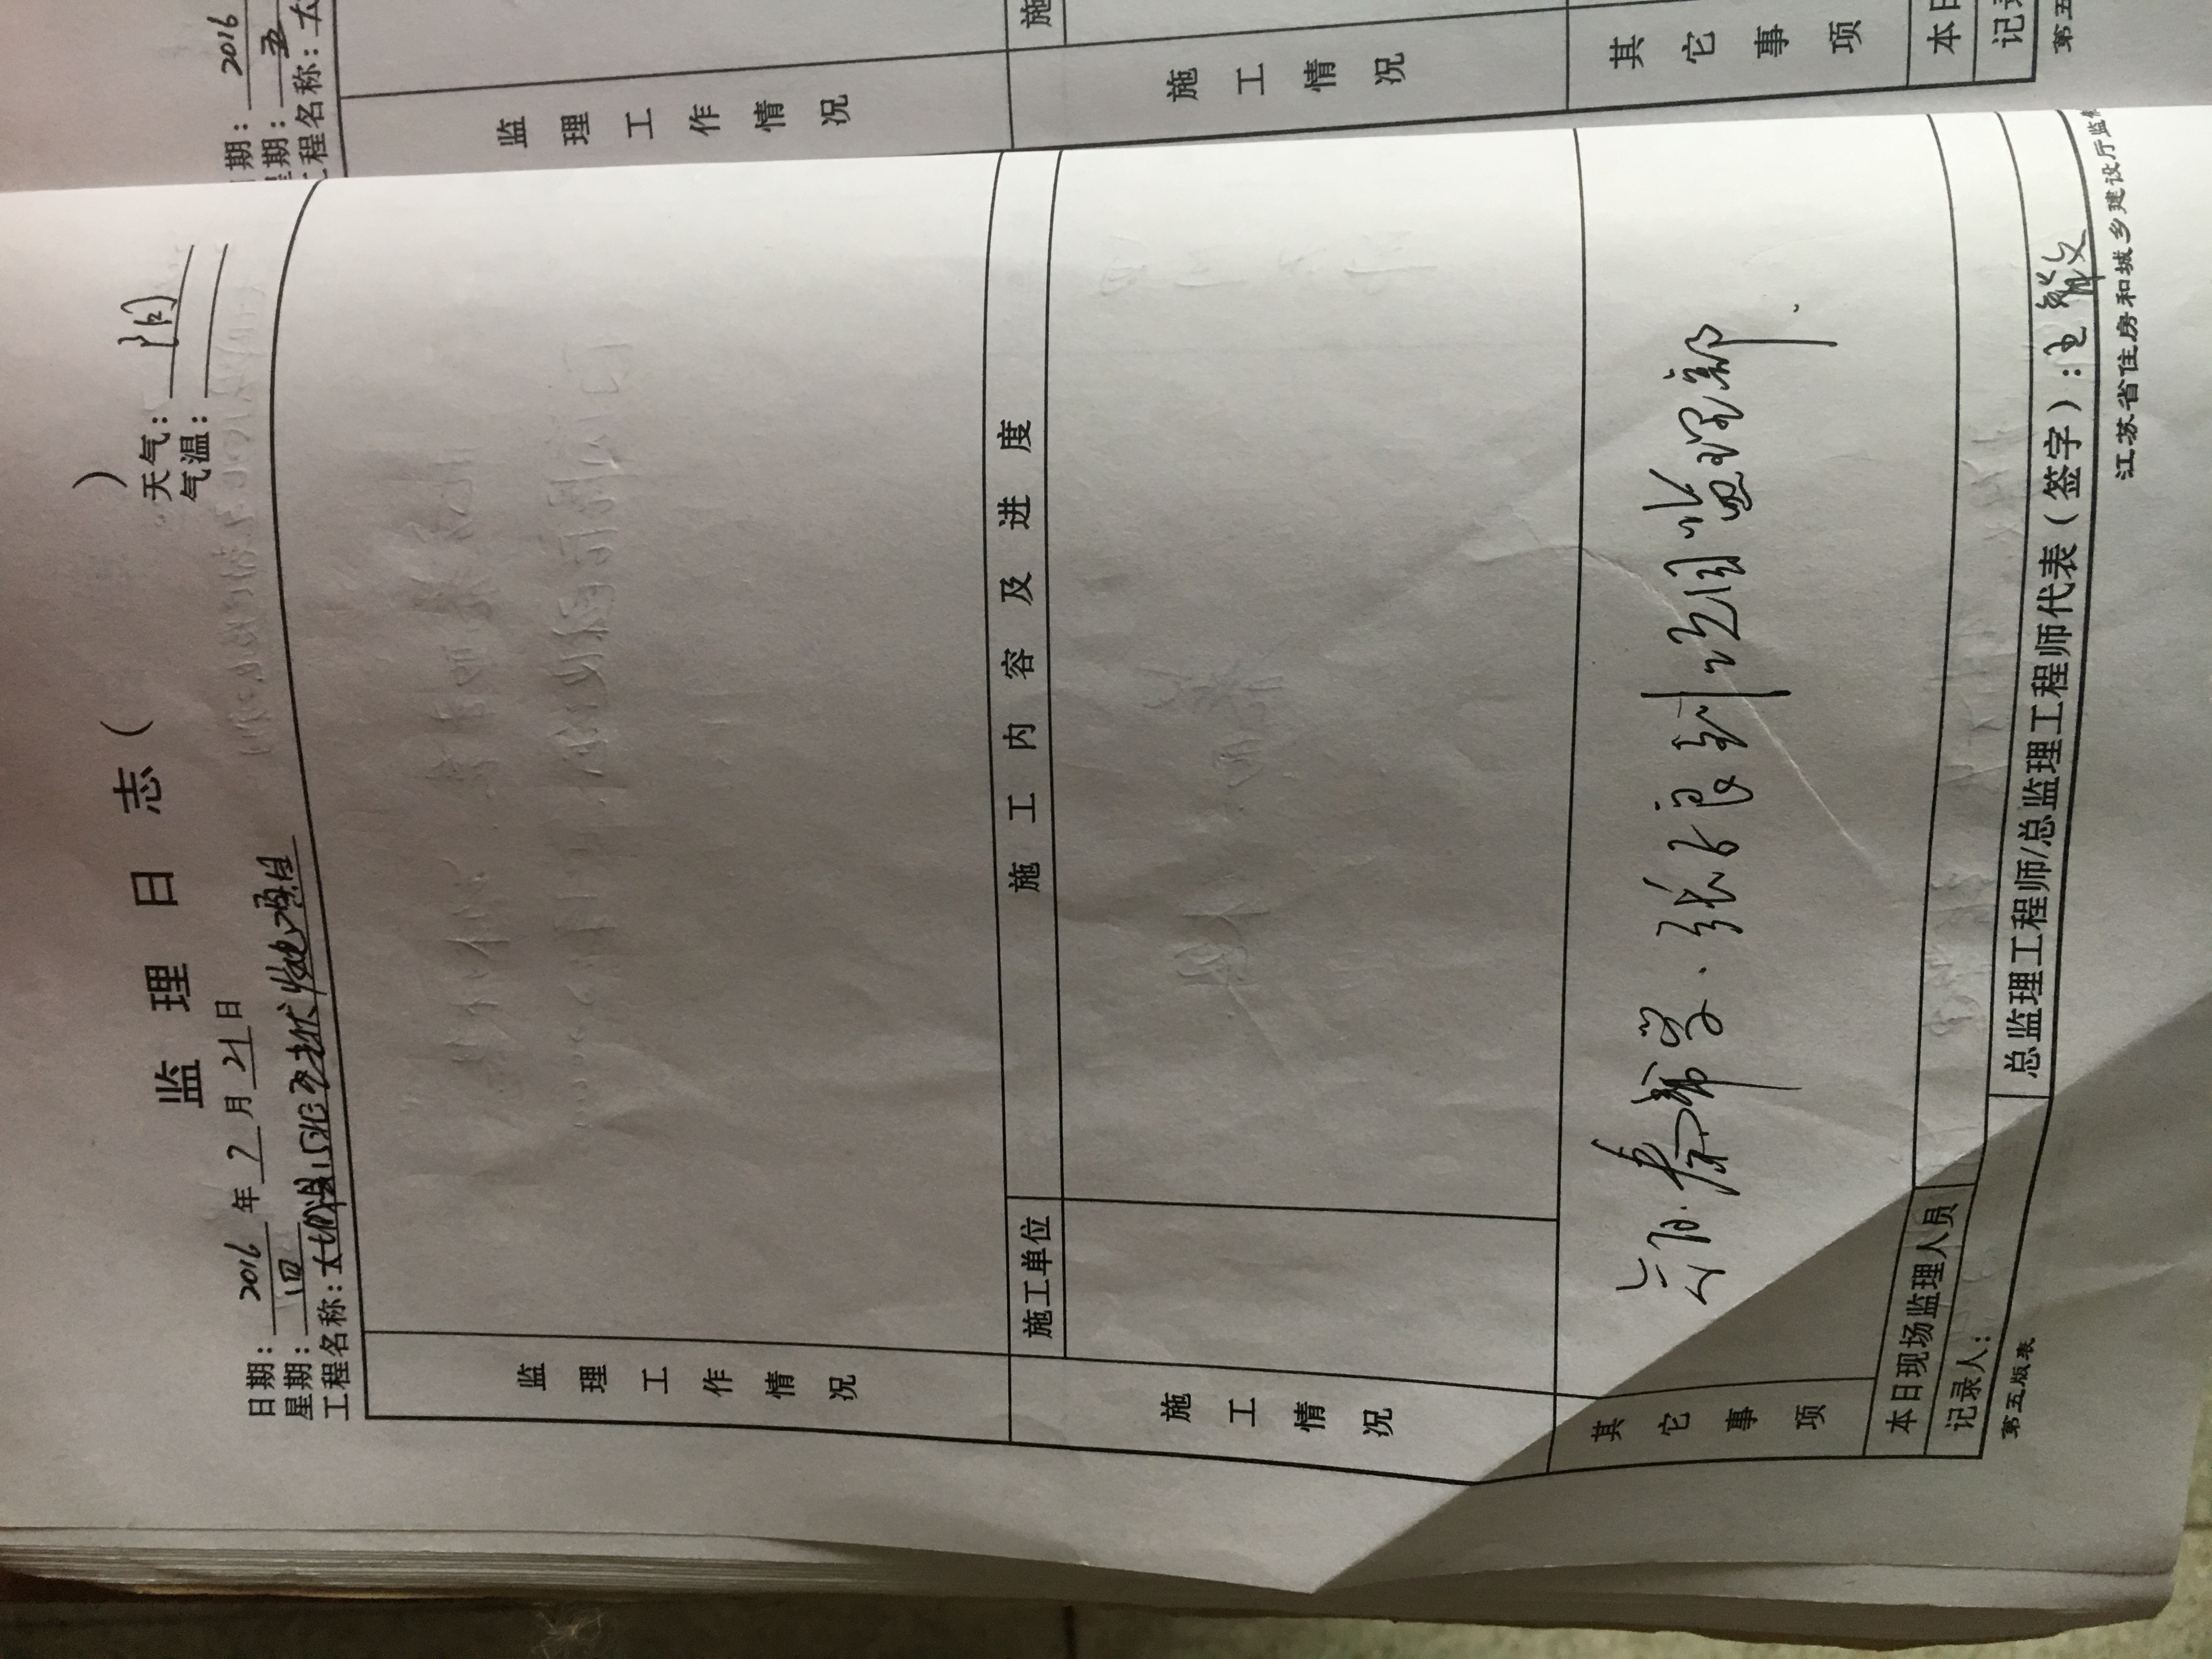 监理日志（ ）
日期：2016年7月21日 天气：阴
星期：四 气温：
工程名称：
监理工作情况
施工单位 施工内容及进度
施工情况
其它事项
今日. 张良到 监理部.
本日现场监理人员
记录人： 总监理工程师/总监理工程师代表（签字）：
第五版表 江苏省住房和城乡建设厅监制
期：2016
期：五
程名称：太
监理工作情况
施
施工情况
其它事项
本日
记录
第五